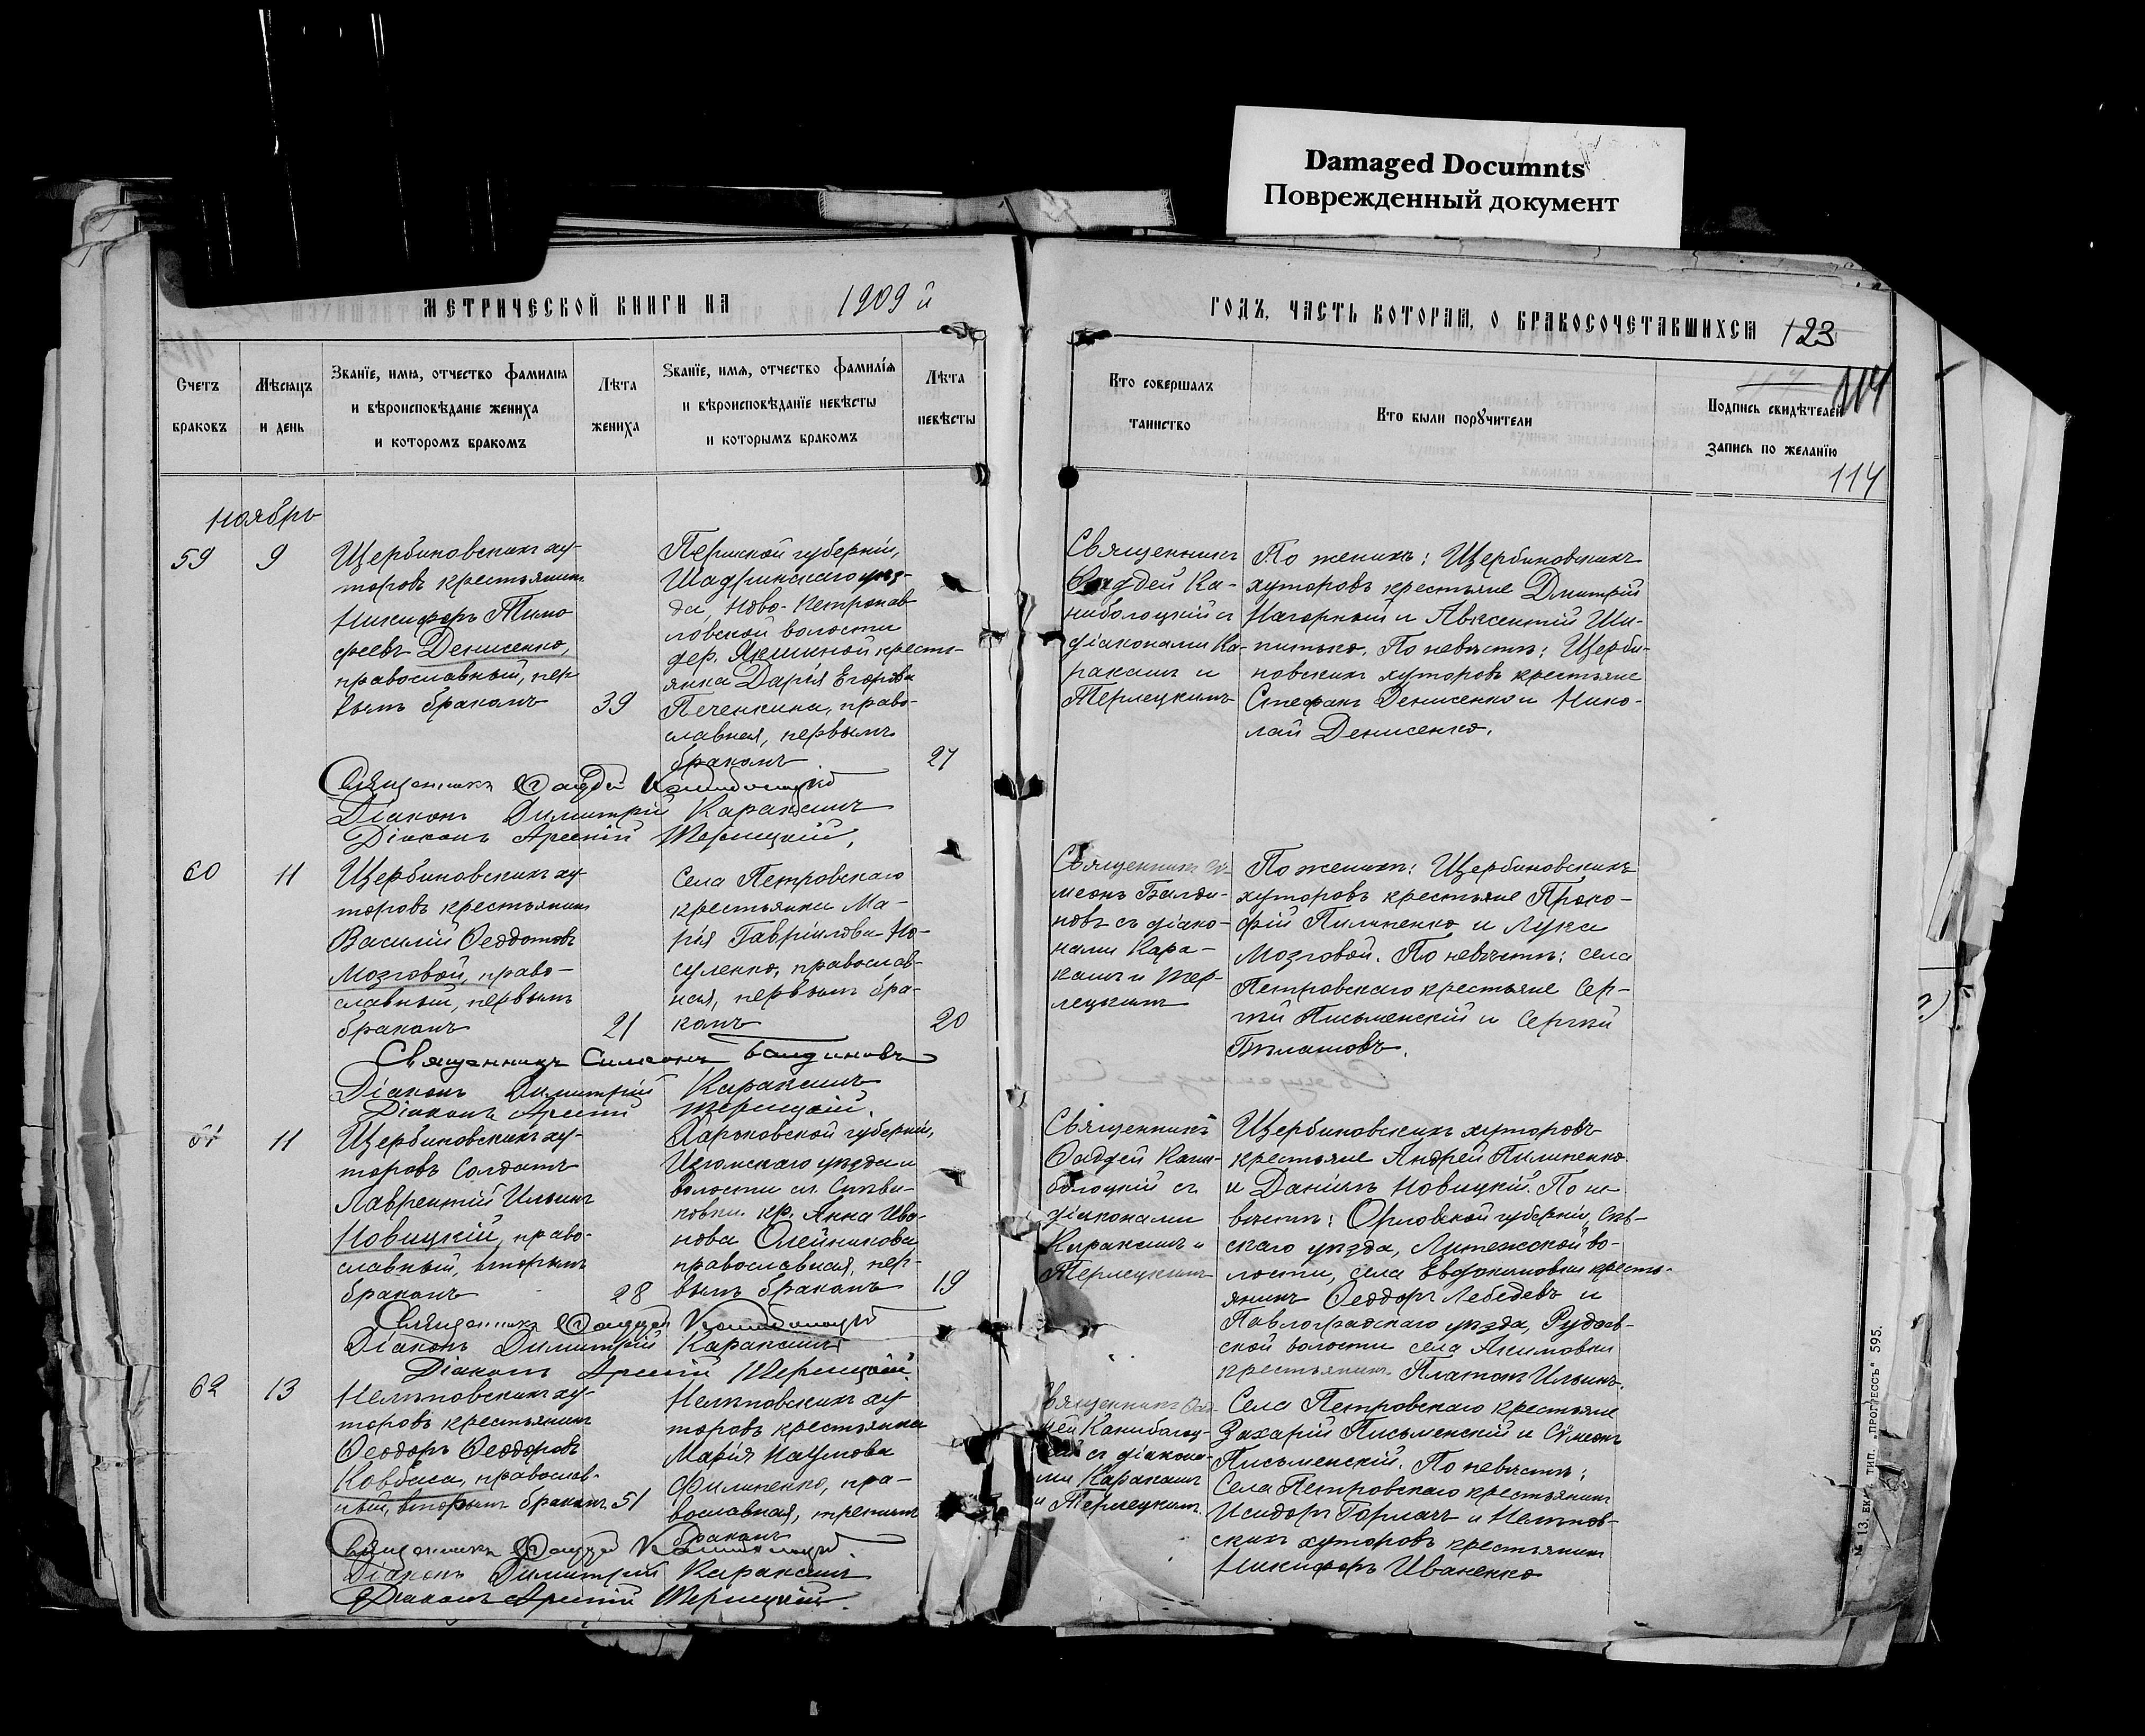 Damaged Documnts
Поврежденный документ
МЕТРИЧЕСКОЙ КНИГИ НА 1909 й
ГОДЪ, ЧАСТЬ ВТОРАЯ, О БРАКОСОЧЕТАВШИХСЯ 123
114
114
Счетъ браковъ
Мѣсяцъ и день
Званїе, имя, отчество фамилия
и вѣроисповѣданїе жениха
и которомъ бракомъ
Лѣта жениха
Званїе, имя, отчество фамилїя
и вѣроисповѣданїе невѣсты
и которымъ бракомъ
Лѣта невѣсты
Кто совершалъ
таинство
Кто были порꙋчители
Подпись свидѣтелей
запись по желанїю
Ноябрь
59 9
Щербиновскихъ ху-
торовъ крестьянинъ
Никифоръ Тимо
феевъ Денисенко,
православный, пер
вымъ бракомъ
39
Пермской губерніи,
Шадринскаго уѣз-
да, Ново-Петропав
ловской волости
дер. Якшиной кресть-
янка Дарія Егорова
Печенкина, право-
славная, первымъ
бракомъ
27
Священникъ
Фаддей Ка-
ниболоцкій съ
діаконами Ка-
ракашъ и
Терлецкимъ
По женихѣ: Щербиновскихъ
хуторовъ крестьяне Дмитрій
Нагорный и Авксентій Ши-
питько. По невѣстѣ: Щерби-
новскихъ хуторовъ крестьяне
Стефанъ Денисенко и Нико-
лай Денисенко.
Священникъ Фаддей Каниболоцкій
Діаконъ Димитрій Каракашъ
Діаконъ Арсеній Терлецкій.
60 11
Щербиновскихъ ху-
торовъ крестьянинъ
Василій Феодотовъ
Мозговой, право-
славный, первымъ
бракомъ
21
Села Петровскаго
крестьянка Ма-
рія Гавріилова Но-
суленко, православ-
ная, первымъ бра-
комъ
20
Священникъ Си-
меонъ Балди-
новъ съ діако-
нами Кара-
кашъ и Тер-
лецкимъ
По женихѣ: Щербиновскихъ
хуторовъ крестьяне Проко-
фій Пилипенко и Лука
Мозговой. По невѣстѣ: села
Петровскаго крестьяне Сер-
гѣй Письменскій и Сергѣй
Бѣлашовъ.
Священникъ Симеонъ Балдиновъ
Діаконъ Димитрій Каракашъ
Діаконъ Арсеній Терлецкій.
61 11
Щербиновскихъ ху-
торовъ Солдатъ
Лаврентій Ильинъ
Новицкій, право-
славный, вторымъ
бракомъ
28
Харьковской губерніи,
Изюмскаго уѣзда и
волости сл.
кр. Анна Ива-
нова Олейникова
православная, пер-
вымъ бракомъ
19
Священникъ
Фаддей Кани-
болоцкій съ
діаконами
Каракашъ и
Терлецкимъ
Щербиновскихъ хуторовъ
крестьяне Андрей Пилипенко
и Даніилъ Новицкій. По не
вѣстѣ: Орловской губерніи, Сѣв-
скаго уѣзда, во-
лости, села Евдокимовки кресть-
янинъ Феодоръ Лебедевъ и
Павлоградскаго уѣзда,
ской волости села Акимовки
крестьянинъ Платонъ Ильинъ.
Священникъ Фаддей Каниболоцкій
Діаконъ Димитрій Каракашъ
Діаконъ Арсеній Терлецкій.
62 13
Нелѣповскихъ ху-
торовъ крестьянинъ
Феодоръ Феодоровъ
Ковбаса, православ-
ный, вторымъ бракомъ 51
Нелѣповскихъ ху
торовъ крестьянка
Марія Наумова
Филипенко, пра-
вославная, третьимъ
бракомъ
Священникъ Фад-
дей Каниболоц-
кій съ діакона-
ми Каракашъ
и Терлецкимъ
Села Петровскаго крестьяне
Захарій Письменскій и Симеонъ
Письменскій. По невѣстѣ:
Села Петровскаго крестьянинъ
Исидоръ Горлачъ и Нелѣпов-
скихъ хуторовъ крестьянинъ
Никифоръ Иваненко
Священникъ Фаддей Каниболоцкій.
Діаконъ Димитрій Каракашъ
Діаконъ Арсеній Терлецкій.
ТИП. „ПРОГРЕССЪ" 595.